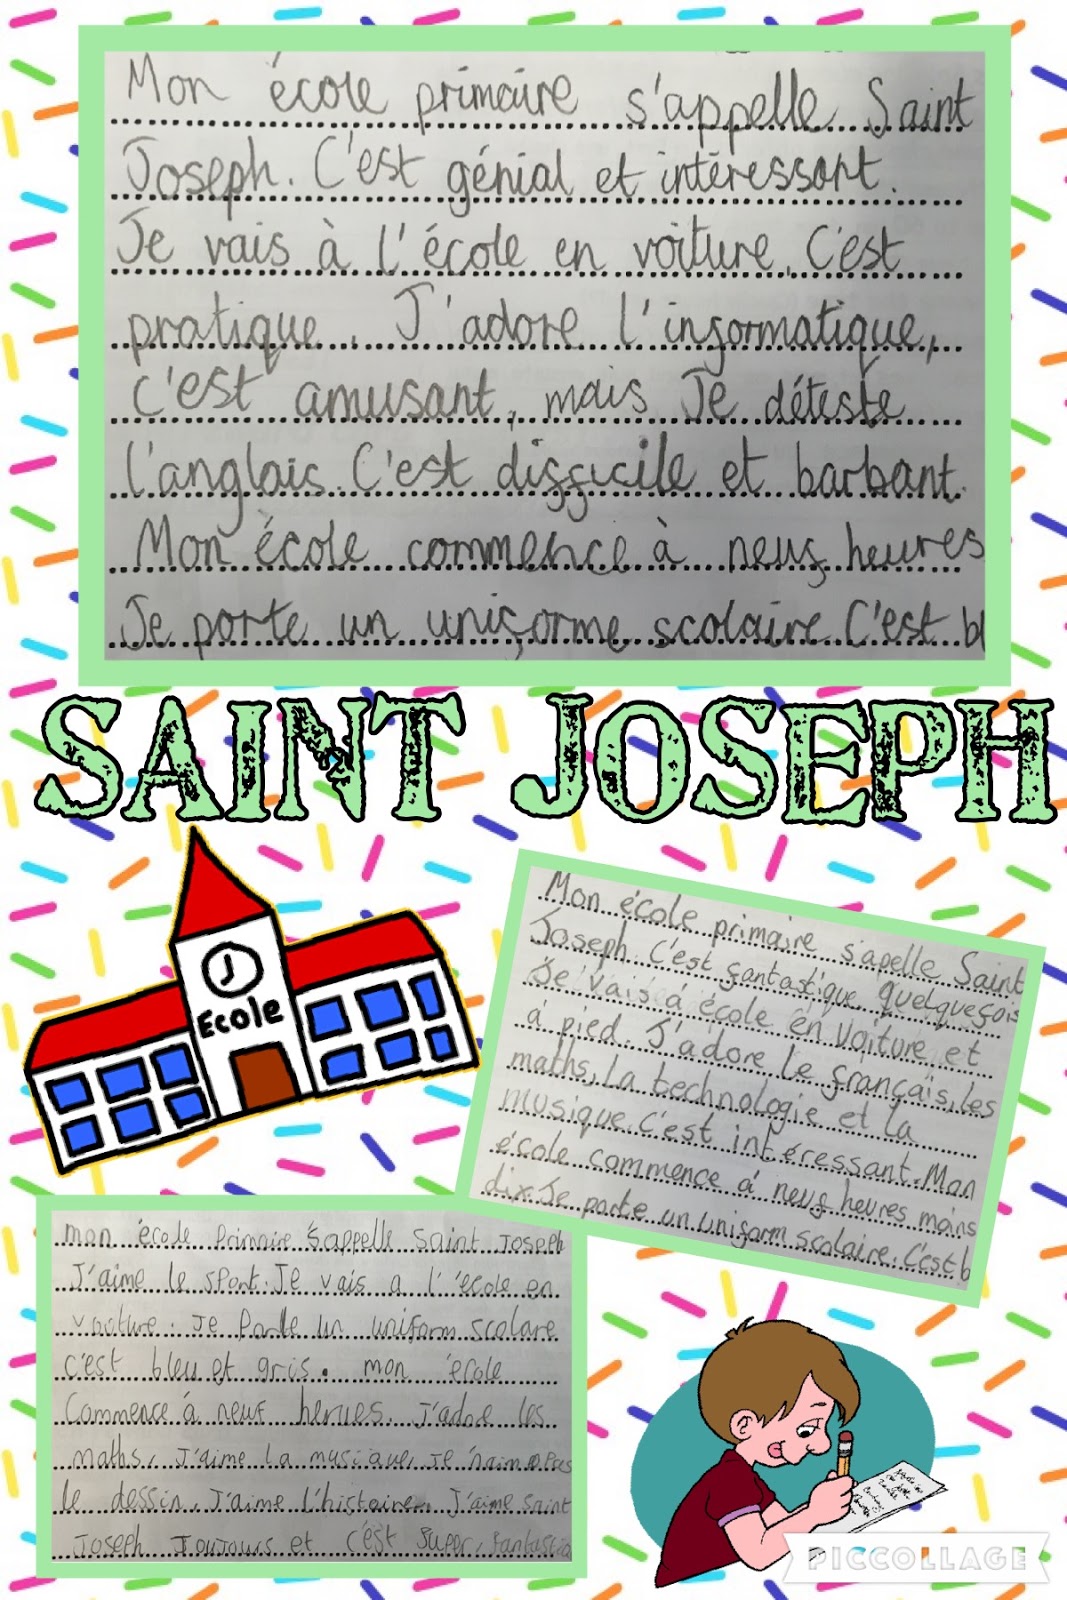 Mon école primaire s'appelle Saint
Joseph. C'est génial et intéressant.
Je vais à l'école en voiture. C'est
pratique. J'adore l'informatique,
c'est amusant, mais Je déteste
l'anglais. C'est difficile et barbant.
Mon école commence à neuf heures
Je porte un uniforme scolaire. C'est bl
SAINT JOSEPH
Ecole
Mon école primaire s'apelle Saint
Joseph. C'est fantastique quelquefois
Je vais á école en voiture et
á pied. J'adore le français, les
maths, la technologie et la
musique. C'est intéressant. Mon
école commence á neuf heures moins
dix. Je porte un uniform scolaire. C'est b
mon école Primaire s'appelle Saint Joseph
J'aime le sport. Je vais a l'école en
voiture. Je Porte un uniform scolare
c'est bleu et gris. mon école
Commence á neuf herues. J'adore les
maths, J'aime la musique, Je n'aime Pas
le dessin, J'aime l'histoire. J'aime Saint
Joseph Toujours et c'est super, fantastic
PICCOLLAGE